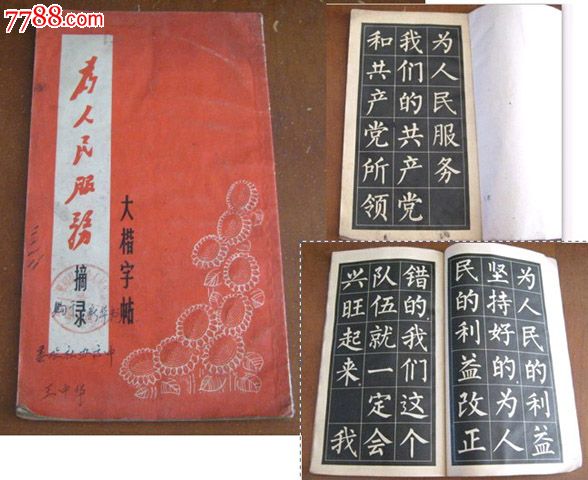 7788.com
为人民服務
摘录
大楷字帖
为人民服务
我们的共产党
和共产党所领
为人民的利益
坚持好的为人
民的利益改正
错的我们这个
队伍就一定会
兴旺起来 我